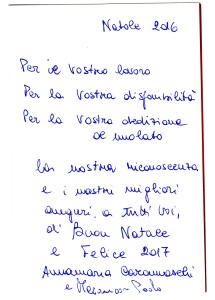 Natale 2016
Per il vostro lavoro
Per la vostra disponibilità
Per la vostra dedizione
al malato
la nostra riconoscenza
e i nostri migliori
auguri a tutti voi,
di Buon Natale
e Felice 2017
Annamaria
e Paolo